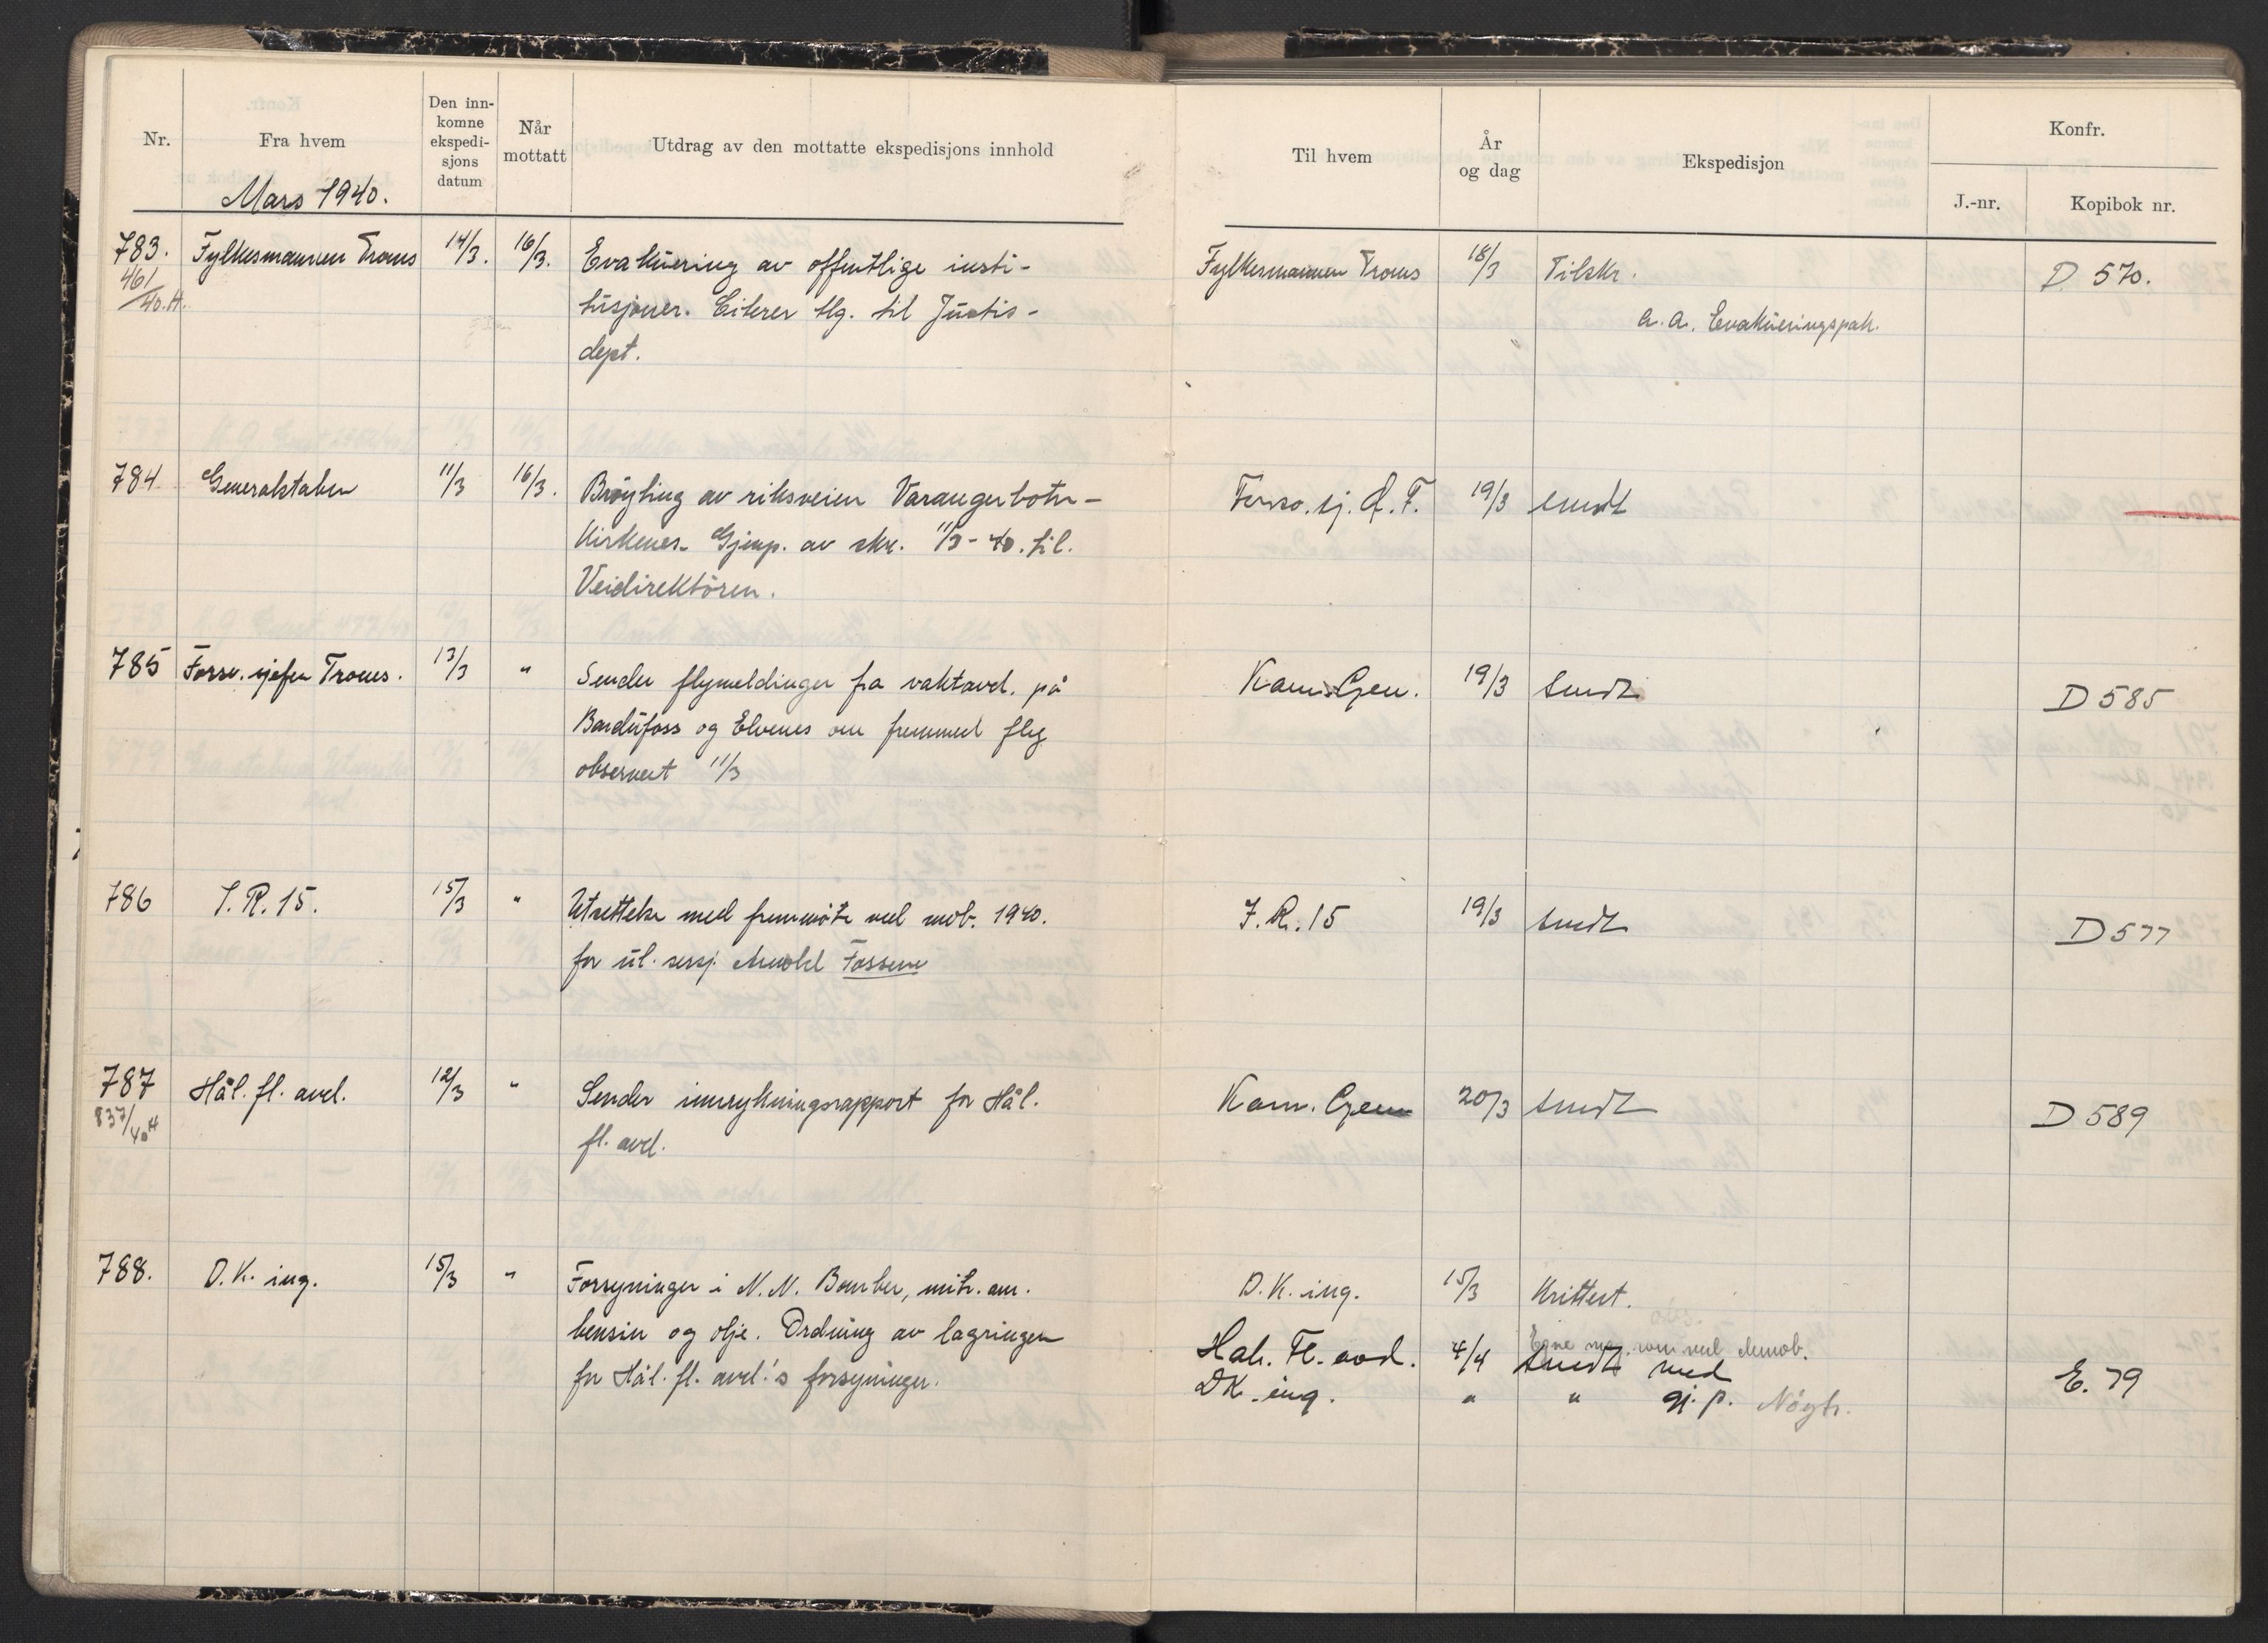 Nr.
Fra hvem
Den inn-
komne
ekspedi-
sjons
datum
Når
mottatt
Utdrag av den mottatte ekspedisjons innhold
Til hvem
År
og dag
Ekspedisjon
Konfr.
J.-nr.
Kopibok nr.
Mars 1940.
783. Fylkesmannen Troms 14/3. 16/3. Evakuering av offentlige insti-
461
/40.H.
tusjoner. Citerer tlg. til Justis-
dept.
Fylkesmannen Troms 18/3 Tilskr. D 570.
a.a. Evakueringspak.
784 Generalstaben 11/3 16/3. Brøyting av riksveien Varangerbotn-
Kirkenes. Gjenp. av skr. 11/3-40. til
Veidirektören.
Forsv. sj. Ö.F. 19/3 sendt
785 Forsv. sjefen Troms. 13/3 " Sender flymeldinger fra vaktavd. på
Bardufoss og Elvenes om fremmed fly
observert 11/3
Kom. Gen. 19/3 Sendt D 585
786 I.R. 15. 15/3 " Utsettelse med fremmöte ved mob. 1940.
for ul. sersj. Arnold Fossene
I.R. 15 19/3 sendt D 577
787 Hål. fl. avd. 12/3 " Sender innrykningsrapport for Hål.
837/40H
fl. avd.
Kom. Gen 20/3 sendt D 589
788. D.K. ing. 15/3 " Forsyninger i N.N. Bomber, mitr. am.
bensin og olje. Ordning av lagringen
for Hål. fl. avd.'s forsyninger.
D.K. ing. 15/3 Kvittert.
obs.
Hål. Fl. avd. 4/4 sendt med
DK. ing. " " gj. p. Nögtr.
E. 79